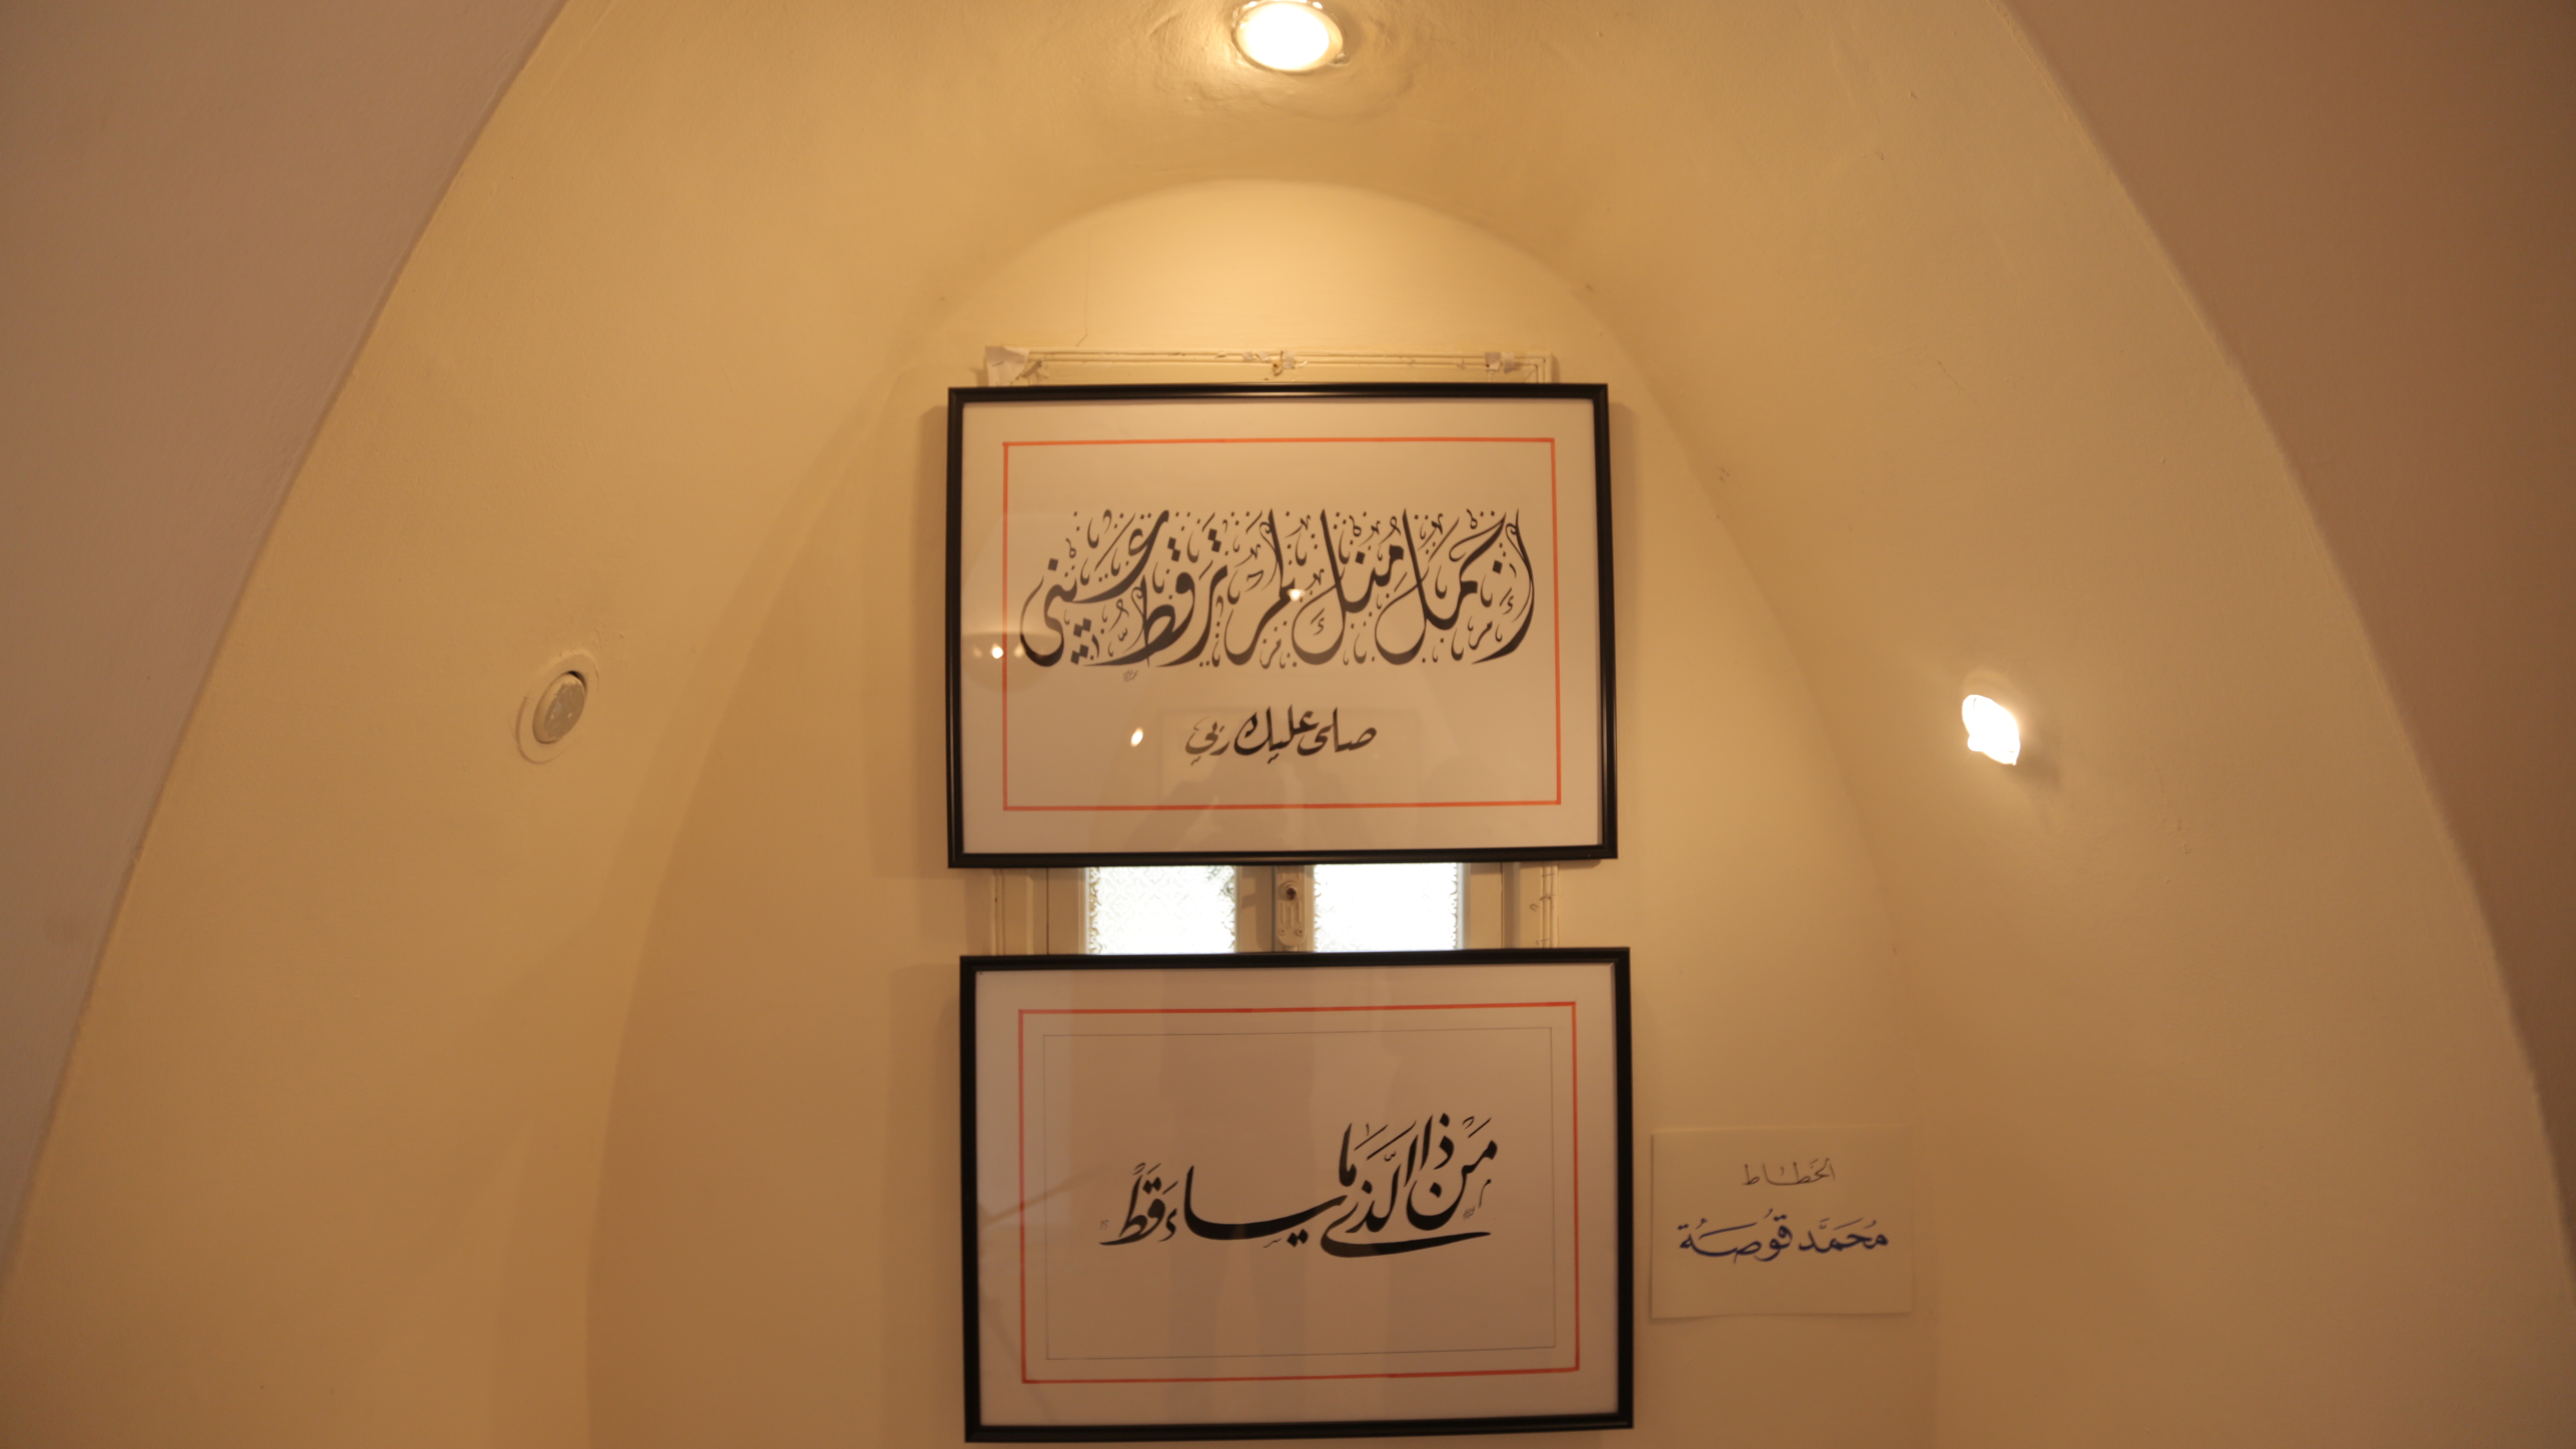 أجمل منك لم تر قط عيني
صلى عليك ربي
مَنْ ذا الَّذي مَا ساء قَطُّ
الخطاط
مُحَمَّد قُوصَة